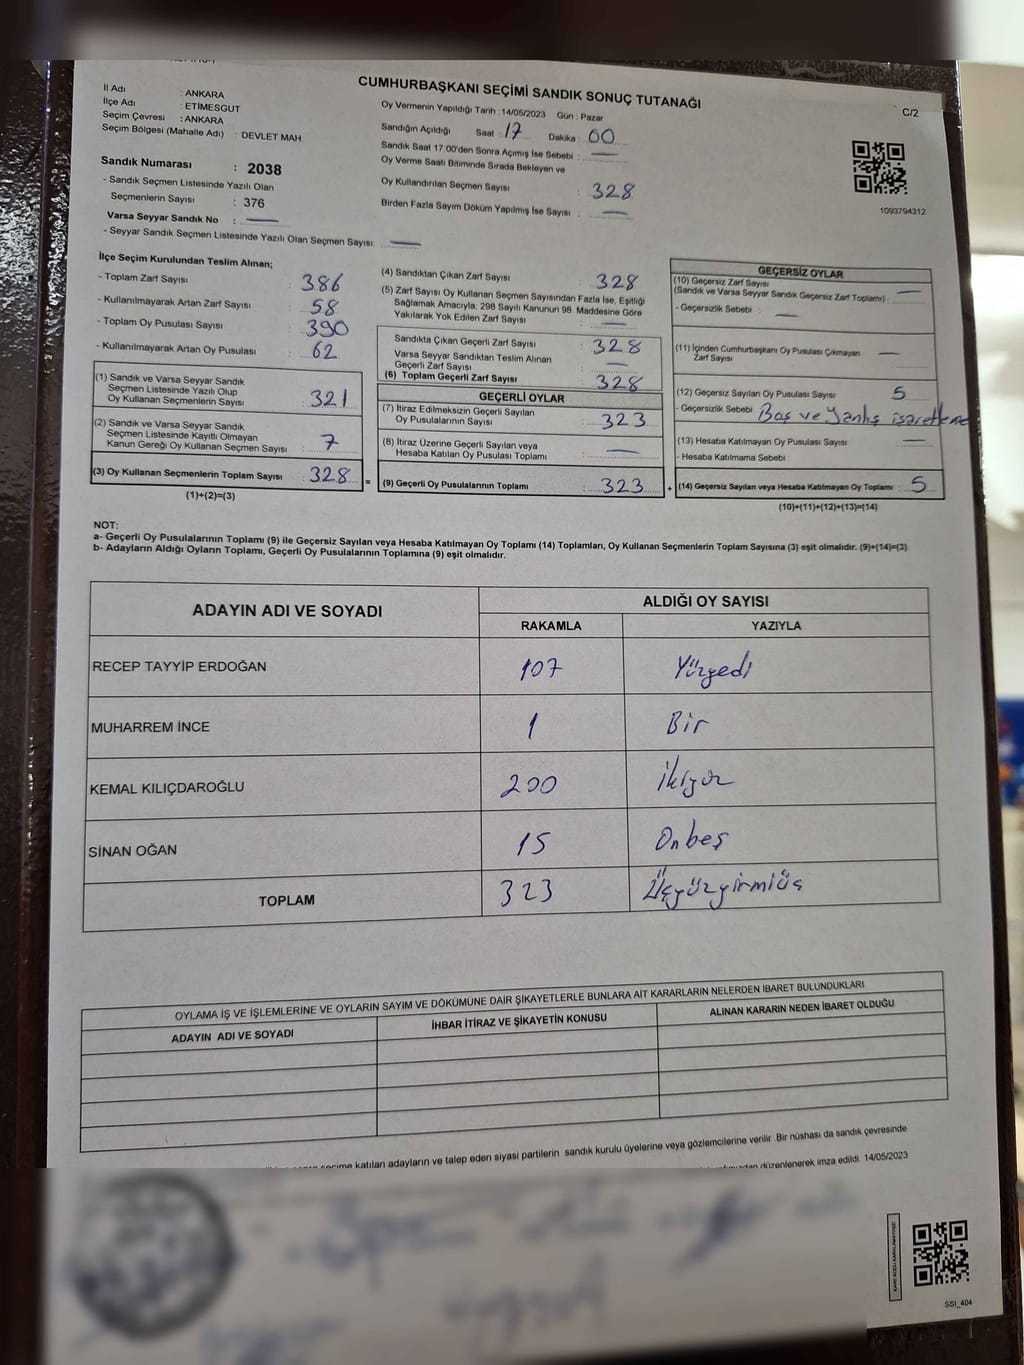 CUMHURBAŞKANI SEÇİMİ SANDIK SONUÇ TUTANAĞI
C/2
İl Adı : ANKARA
İlçe Adı : ETİMESGUT
Seçim Çevresi : ANKARA
Seçim Bölgesi (Mahalle Adı) : DEVLET MAH.
Sandık Numarası : 2038
- Sandık Seçmen Listesinde Yazılı Olan
Seçmenlerin Sayısı : 376
Varsa Seyyar Sandık No : —
- Seyyar Sandık Seçmen Listesinde Yazılı Olan Seçmen Sayısı: —
Oy Vermenin Yapıldığı Tarih : 14/05/2023 Gün : Pazar
Sandığın Açıldığı Saat : 17 Dakika : 00
Sandık Saat 17.00'den Sonra Açımış İse Sebebi : —
Oy Verme Saati Bitiminde Sırada Bekleyen ve
Oy Kullandırılan Seçmen Sayısı : 328
Birden Fazla Sayım Döküm Yapılmış İse Sayısı : —
1093794312
İlçe Seçim Kurulundan Teslim Alınan;
- Toplam Zarf Sayısı : 386
- Kullanılmayarak Artan Zarf Sayısı : 58
- Toplam Oy Pusulası Sayısı : 390
- Kullanılmayarak Artan Oy Pusulası : 62
(1) Sandık ve Varsa Seyyar Sandık
Seçmen Listesinde Yazılı Olup
Oy Kullanan Seçmenlerin Sayısı : 321
(2) Sandık ve Varsa Seyyar Sandık
Seçmen Listesinde Kayıtlı Olmayan
Kanun Gereği Oy Kullanan Seçmen Sayısı : 7
(3) Oy Kullanan Seçmenlerin Toplam Sayısı : 328 =
(1)+(2)=(3)
(4) Sandıktan Çıkan Zarf Sayısı : 328
(5) Zarf Sayısı Oy Kullanan Seçmen Sayısından Fazla İse, Eşitliği
Sağlamak Amacıyla, 298 Sayılı Kanunun 98. Maddesine Göre
Yakılarak Yok Edilen Zarf Sayısı : —
Sandıkta Çıkan Geçerli Zarf Sayısı : 328
Varsa Seyyar Sandıktan Teslim Alınan
Geçerli Zarf Sayısı : —
(6) Toplam Geçerli Zarf Sayısı : 328
GEÇERLİ OYLAR
(7) İtiraz Edilmeksizin Geçerli Sayılan
Oy Pusulalarının Sayısı : 323
(8) İtiraz Üzerine Geçerli Sayılan veya
Hesaba Katılan Oy Pusulası Toplamı : —
(9) Geçerli Oy Pusulalarının Toplamı : 323 +
GEÇERSİZ OYLAR
(10) Geçersiz Zarf Sayısı
(Sandık ve Varsa Seyyar Sandık Geçersiz Zarf Toplamı) : —
- Geçersizlik Sebebi : —
(11) İçinden Cumhurbaşkanı Oy Pusulası Çıkmayan
Zarf Sayısı : —
(12) Geçersiz Sayılan Oy Pusulası Sayısı : 5
- Geçersizlik Sebebi : Boş ve Yanlış işaretleme
(13) Hesaba Katılmayan Oy Pusulası Sayısı : —
- Hesaba Katılmama Sebebi :
(14) Geçersiz Sayılan veya Hesaba Katılmayan Oy Toplamı : 5
(10)+(11)+(12)+(13)=(14)
NOT:
a- Geçerli Oy Pusulalarının Toplamı (9) ile Geçersiz Sayılan veya Hesaba Katılmayan Oy Toplamı (14) Toplamları, Oy Kullanan Seçmenlerin Toplam Sayısına (3) eşit olmalıdır. (9)+(14)=(3)
b- Adayların Aldığı Oyların Toplamı, Geçerli Oy Pusulalarının Toplamına (9) eşit olmalıdır.
ADAYIN ADI VE SOYADI ALDIĞI OY SAYISI
RAKAMLA YAZIYLA
RECEP TAYYİP ERDOĞAN 107 Yüzyedi
MUHARREM İNCE 1 Bir
KEMAL KILIÇDAROĞLU 200 İkiyüz
SİNAN OĞAN 15 Onbeş
TOPLAM 323 Üçyüzyirmiüç
OYLAMA İŞ VE İŞLEMLERİNE VE OYLARIN SAYIM VE DÖKÜMÜNE DAİR ŞİKAYETLERLE BUNLARA AİT KARARLARIN NELERDEN İBARET BULUNDUKLARI
ADAYIN ADI VE SOYADI İHBAR İTİRAZ VE ŞİKAYETİN KONUSU ALINAN KARARIN NEDEN İBARET OLDUĞU
seçime katılan adayların ve talep eden siyasi partilerin sandık kurulu üyelerine veya gözlemcilerine verilir. Bir nüshası da sandık çevresinde
düzenlenerek imza edildi. 14/05/2023
SSI_404